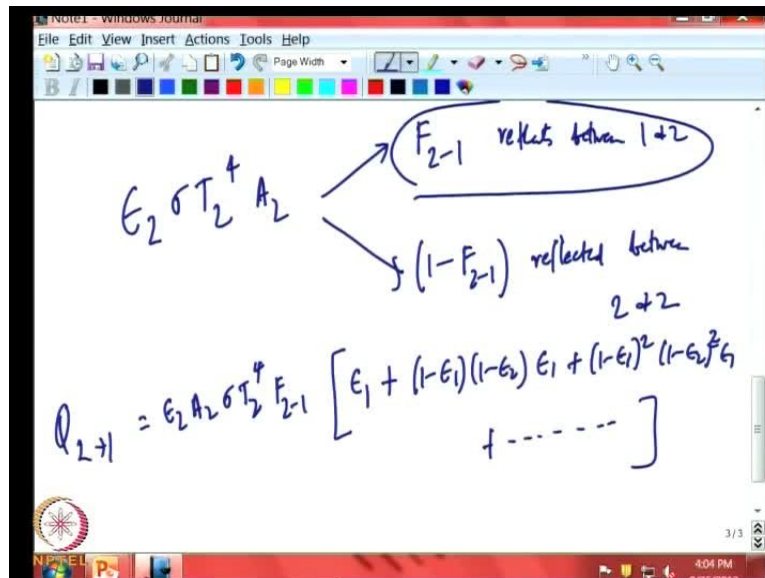 Note1 - Windows Journal
File Edit View Insert Actions Tools Help
Page Width
B I
F₂₋₁ reflects between 1 & 2
ϵ₂ σ T₂⁴ A₂
(1-F₂₋₁) reflected between
2 & 2
Q₂→₁ = ϵ₂ A₂ σ T₂⁴ F₂₋₁ [ϵ₁ + (1-ϵ₁)(1-ϵ₂) ϵ₁ + (1-ϵ₁)² (1-ϵ₂)² ϵ₁
+ ------- ]
3/3
NPTEL
4:04 PM